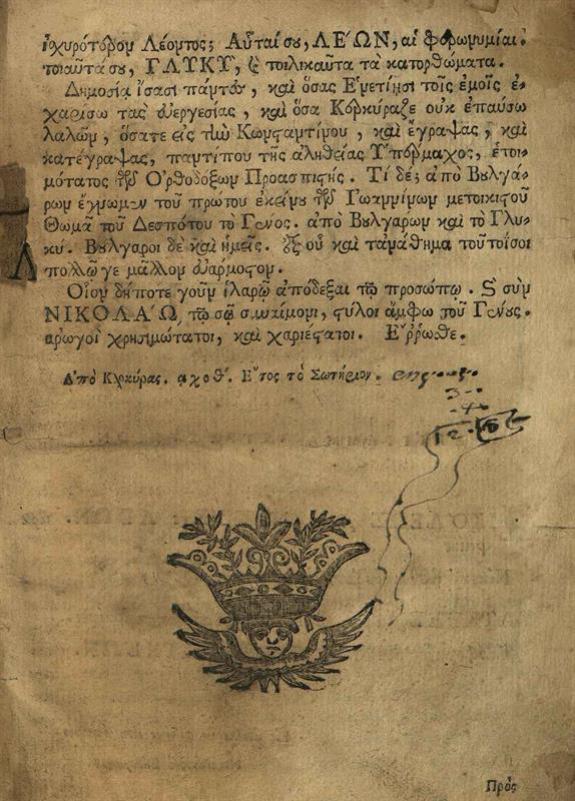 ἰχυρότερον Λέοντος; Αὗταί σου, ΛΕΏΝ, αἱ φερωνυμίαι.
τοιαῦτά σου, ΓΛΥΚΥ, καὶ τοιλικαῦτα τὰ κατορθώματα.
Δημοσίᾳ ἴσασι πάντες, καὶ ὅσας Ἑνετίησι τοῖς ἐμοῖς ἐ-
χαρίσω τὰς εὐεργεσίας, καὶ ὅσα Κέρκύραζε οὐκ ἐπαύσω
λαλῶν, ὅσατε εἰς τὴν Κωνσταντίνου, καὶ ἔγραψας, καὶ
κατέγραψας, παντίπου τῆς ἀληθείας Ὑπέρμαχος, ἑτοι-
μότατος τῶν Ὀρθοδόξων Προασπιστής. Τί δέ; ἀπὸ Βουλγά-
ρων ἔγνωμεν τοῦ πρώτου ἐκείνου τῶν Ἰωαννίνων μετοικιστοῦ
Θωμᾶ τοῦ Δεσπότου τὸ Γένος. ἀπὸ Βουλγάρων καὶ τὸ Γλυ-
κύ. Βούλγαροι δὲ καὶ ἡμεῖς. ἐξ οὗ καὶ τἀνάθημα τουτοῖσοι
πολλῷ γε μᾶλλον εὐάρμοστον.
Οἷον δήποτε γοῦν ἱλαρῷ ἀπόδεξαι τῷ προσώπῳ. σὺν
ΝΙΚΟΛΑΏ, τῷ σῷ συναίμονι, στύλοι ἄμφω τοῦ Γένους.
ἀρωγοὶ χρησιμώτατοι, καὶ χαριέστατοι. Ἔρρωσθε.
Ἀπὸ Κερκύρας. αχοθ. Ἔτος τὸ Σωτήριον.
Πρὸς